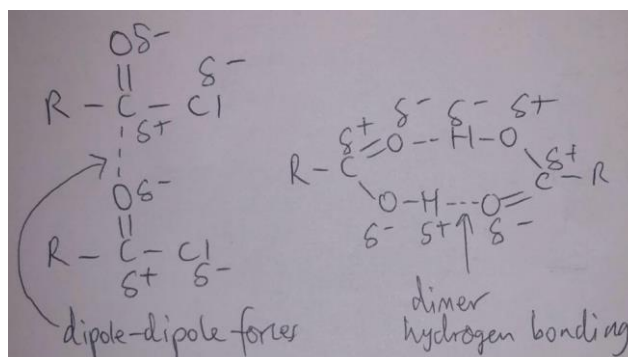 Oδ-
||
δ-
R - C - Cl
δ+
Oδ-
||
R - C - Cl
δ+ δ-
dipole-dipole forces
δ- δ- δ+
δ+ =O --- H - O δ+
R - C C - R
O - H --- O
δ- δ+ δ-
dimer
hydrogen bonding